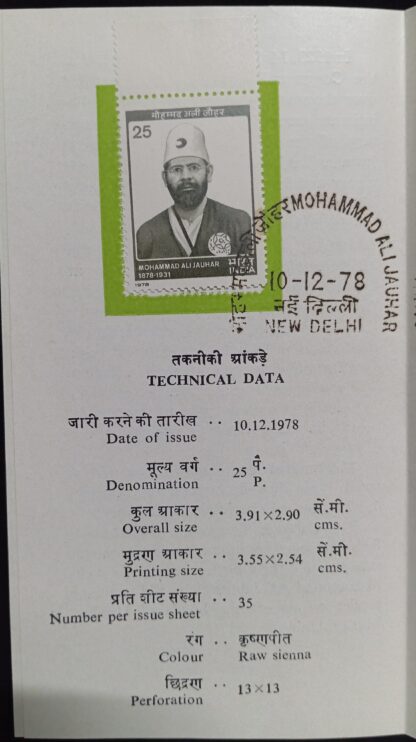 मोहम्मद अली जौहर
25
MOHAMMAD ALI JAUHAR
1878-1931
भारत
INDIA
1978
जौहर MOHAMMAD ALI JAUHAR
10-12-78
नई दिल्ली
NEW DELHI
तकनीकी आंकड़े
TECHNICAL DATA
जारी करने की तारीख ·· 10.12.1978
Date of issue
मूल्य वर्ग ·· 25 पै.
Denomination P.
कुल आकार ·· 3.91×2.90 सें.मी.
Overall size cms.
मुद्रण आकार ·· 3.55×2.54 सें.मी.
Printing size cms.
प्रति शीट संख्या ·· 35
Number per issue sheet
रंग ·· कृष्णपीत
Colour Raw sienna
छिद्रण ·· 13×13
Perforation